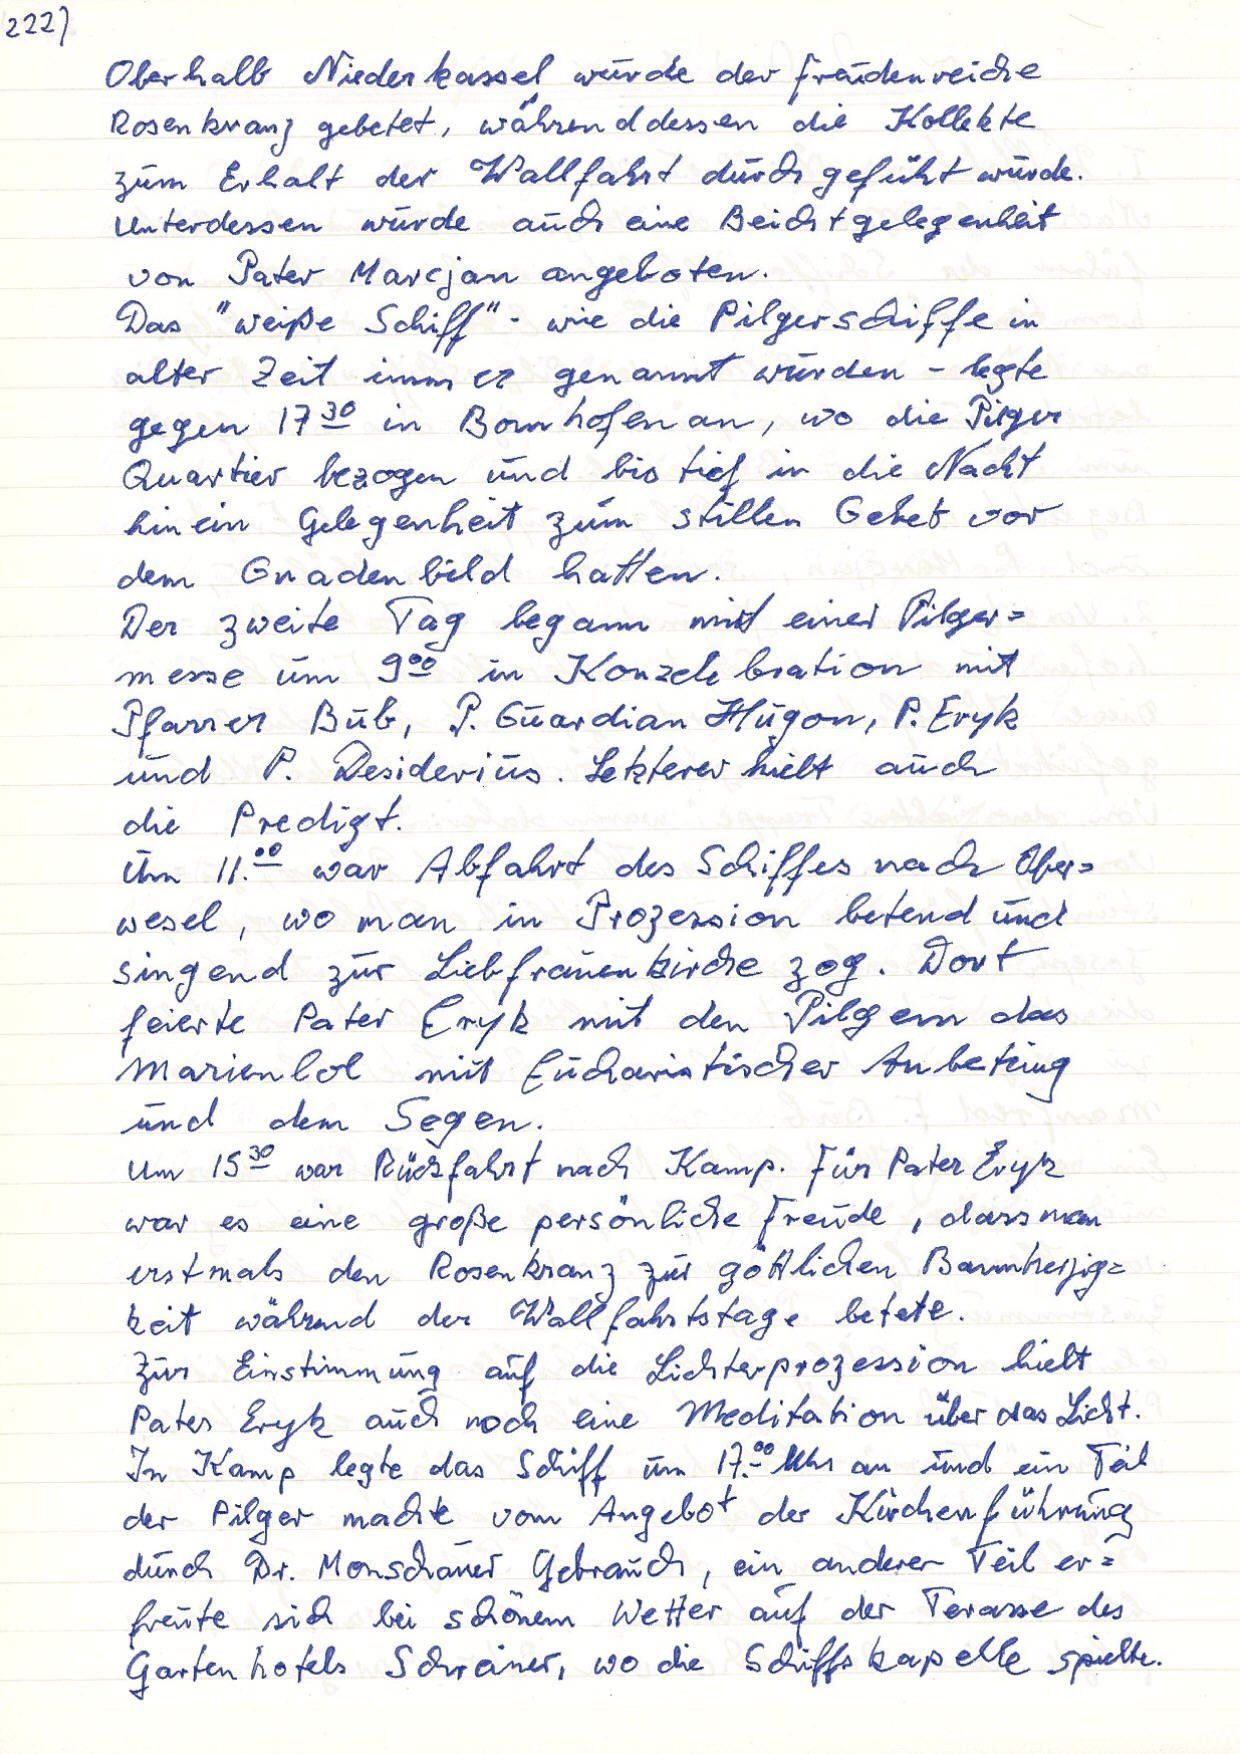 222)
Oberhalb Niederkassel wurde der freudenreiche
Rosenkranz gebetet, währenddessen die Kollekte
zum Erhalt der Wallfahrt durchgeführt wurde.
Unterdessen wurde auch eine Beichtgelegenheit
von Pater Marcjan angeboten.
Das "weiße Schiff" - wie die Pilgerschiffe in
alter Zeit immer genannt wurden - legte
gegen 17 30 in Bornhofen an, wo die Pilger
Quartier bezogen und bis tief in die Nacht
hinein Gelegenheit zum stillen Gebet vor
dem Gnadenbild hatten.
Der zweite Tag begann mit einer Pilger=
messe um 9 00 in Konzelebration mit
Pfarrer Bub, P. Guardian Hugon, P. Eryk
und P. Desiderius. Letzterer hielt auch
die Predigt.
Um 11.00 war Abfahrt des Schiffes nach Ober=
wesel, wo man in Prozession betend und
singend zur Liebfrauenkirche zog. Dort
feierte Pater Eryk mit den Pilgern das
Marienlob mit Eucharistischer Anbetung
und dem Segen.
Um 15 30 war Rückfahrt nach Kamp. Für Pater Eryk
war es eine große persönliche Freude, dass man
erstmals den Rosenkranz zur göttlichen Barmherzig=
keit während der Wallfahrtstage betete.
Zur Einstimmung auf die Lichterprozession hielt
Pater Eryk auch noch eine Meditation über das Licht.
In Kamp legte das Schiff um 17.00 Uhr an und ein Teil
der Pilger machte vom Angebot der Kirchenführung
durch Dr. Monschauer Gebrauch, ein anderer Teil er=
freute sich bei schönem Wetter auf der Terasse des
Gartenhotels Schreiner, wo die Schiffskapelle spielte.